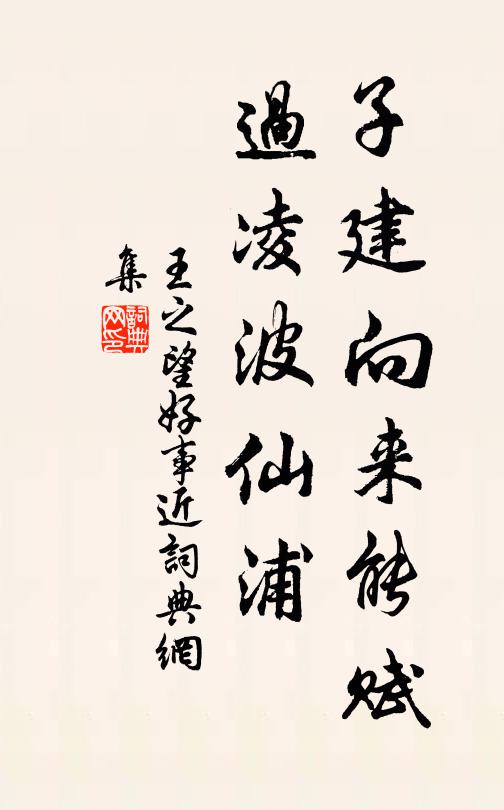 子建向来能赋
過凌波仙浦
王之望好事近詞典網
集
詞典
网印